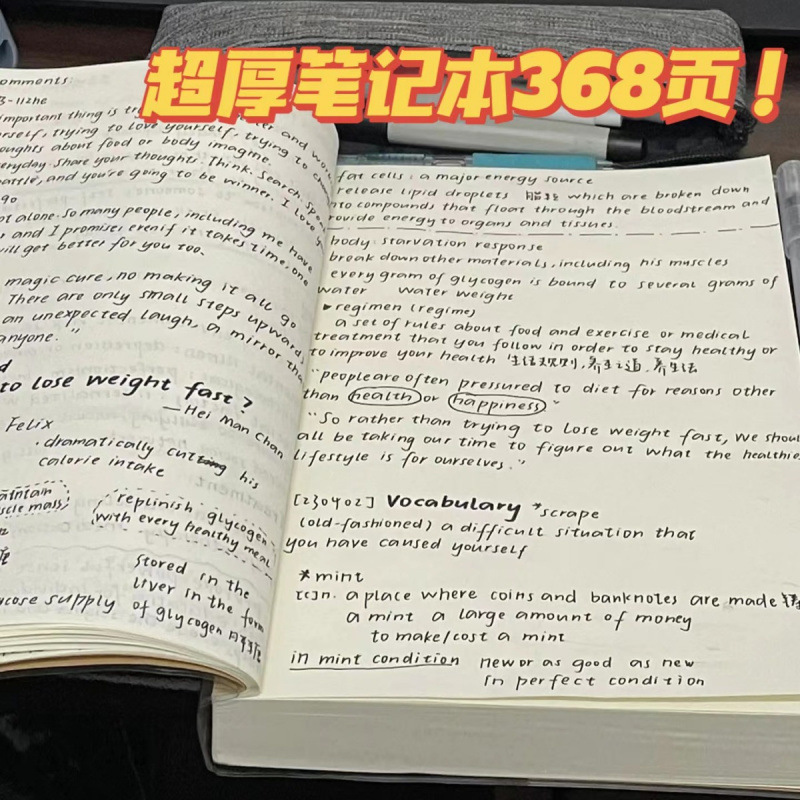 超厚笔记本368页!
omments:
important thing is
rself, trying to love yourself, trying to
oughts about food or body imagine.
everyday. Share your thoughts. Think. Search.
battle, and you're going to be winner. I love
go
at alone. So many people, including me have
s and I promise, even if it takes time, one
will get better for you too.
magic cure, no making it all go
There are only small steps upward,
an unexpected laugh, a mirror
anyone."
to lose weight fast?
— Hei Man Chan
Felix
·dramatically cut his
calorie intake
maintain
muscle mass
replinish glycogen
with every healthy meal
stored in the
liver in the form
of glycogen
ucose supply
fat cells: a major energy source
release lipid droplets 脂粒 which are broken down
into compounds that float through the bloodstream and
rovide energy to organs and tissues.
body: starvation response
break down other materials, including his muscles
every gram of glycogen is bound to several grams of
water water weight
▸ regimen (regime)
a set of rules about food and exercise or medical
treatment that you follow in order to stay healthy or
to improve your health 生活规则,养生之道,养生法
"people are often pressured to diet for reasons other
than health or happiness"
"So rather than trying to lose weight fast, we shoul
all be taking our time to figure out what the healthies
lifestyle is for ourselves."
[230402] Vocabulary *scrape
(old-fashioned) a difficult situation that
you have caused yourself
*mint
[C]n. a place where coins and banknotes are made
a mint a large amount of money
to make/cost a mint
in mint condition new or as good as new
in perfect condition